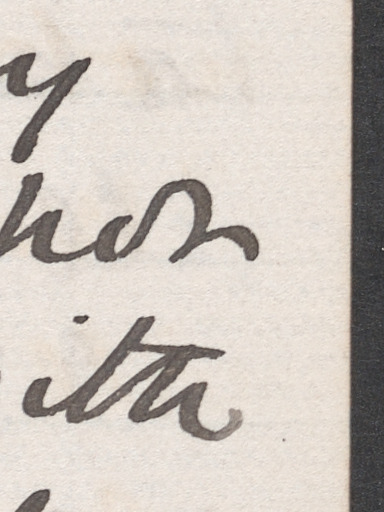 y
hor
ith